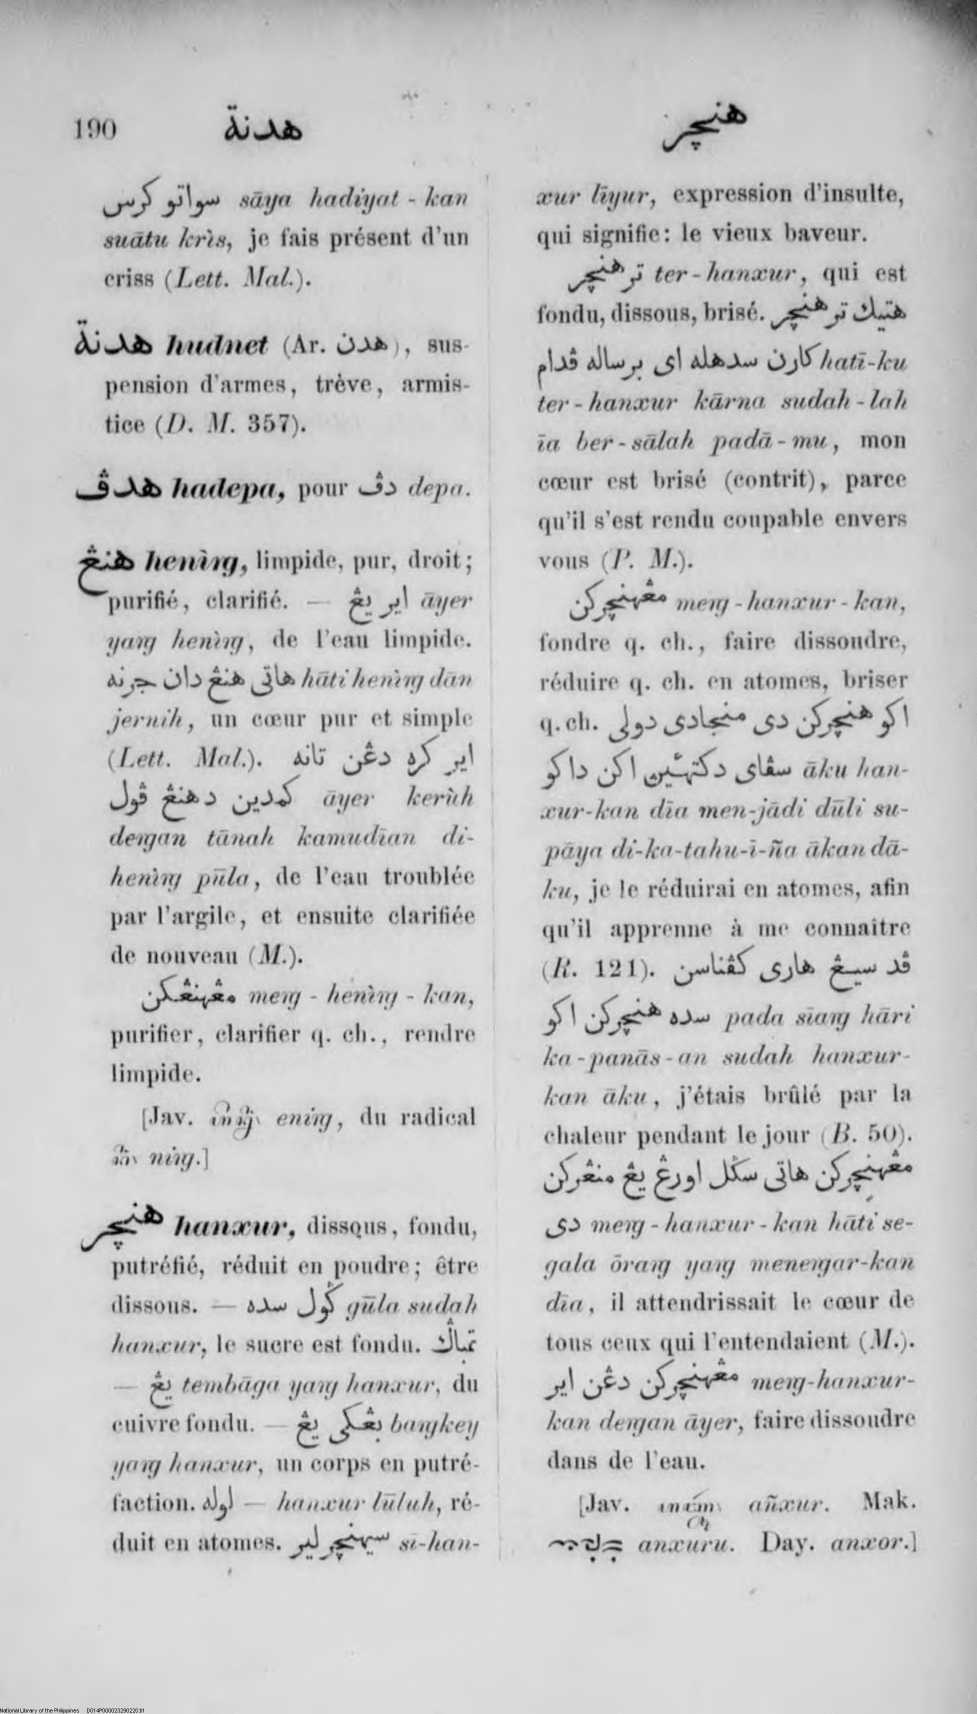 190
هدنة
هنچر
سواتو كرس sāya hadiyat - kan
suātu krìs, je fais présent d'un
criss (Lett. Mal.).
هدنة hudnet (Ar. هدن), sus-
pension d'armes, trève, armis-
tice (D. M. 357).
هدڤ hadepa, pour دڤ depa.
هنيڠ henìng, limpide, pur, droit;
purifié, clarifié. — اير يڠ āyer
yang henìng, de l'eau limpide.
هاتى هنيڠ دان جرنه hāti henìng dān
jernih, un cœur pur et simple
(Lett. Mal.). اير كره دڠن تانه
كمدين دهنيڠ ڤول āyer kerùh
dengan tānah kamudīan di-
henìng pūla, de l'eau troublée
par l'argile, et ensuite clarifiée
de nouveau (M.).
مڠهنيڠكن meng - henìng - kan,
purifier, clarifier q. ch., rendre
limpide.
[Jav. ening, du radical
ning.]
هنچر hanxur, dissous, fondu,
putréfié, réduit en poudre; être
dissous. — ڬول سده gūla sudah
hanxur, le sucre est fondu. تمباڬ
— يڠ tembāga yang hanxur, du
cuivre fondu. — بڠكى يڠ bangkey
yang hanxur, un corps en putré-
faction. لوله — hanxur lūluh, ré-
duit en atomes. سيهنچر لير sī-han-
xur līyur, expression d'insulte,
qui signifie: le vieux baveur.
ترهنچر ter - hanxur, qui est
fondu, dissous, brisé. هتيك ترهنچر
كارن سدهله اى برساله ڤدام hatī-ku
ter - hanxur kārna sudah - lah
īa ber - sālah padā - mu, mon
cœur est brisé (contrit), parce
qu'il s'est rendu coupable envers
vous (P. M.).
مڠهنچركن meng - hanxur - kan,
fondre q. ch., faire dissoudre,
réduire q. ch. en atomes, briser
q. ch. اكو هنچركن دى منجادى دولى
سڤاى دكتهئين اكن داكو āku han-
xur-kan dīa men-jādi dūli su-
pāya di-ka-tahu-ì-ña ākan dā-
ku, je le réduirai en atomes, afin
qu'il apprenne à me connaître
(R. 121). ڤد سيڠ هارى كڤناسن
سده هنچركن اكو pada sīang hāri
ka - panās - an sudah hanxur-
kan āku, j'étais brûlé par la
chaleur pendant le jour (B. 50).
مڠهنچركن هاتى سڬل اورڠ يڠ منڠركن
دى meng - hanxur - kan hāti se-
gala ōrang yang menengar-kan
dīa, il attendrissait le cœur de
tous ceux qui l'entendaient (M.).
مڠهنچركن دڠن اير meng-hanxur-
kan dengan āyer, faire dissoudre
dans de l'eau.
[Jav. añxur. Mak.
anxuru. Day. anxor.]
National Library of the Philippines